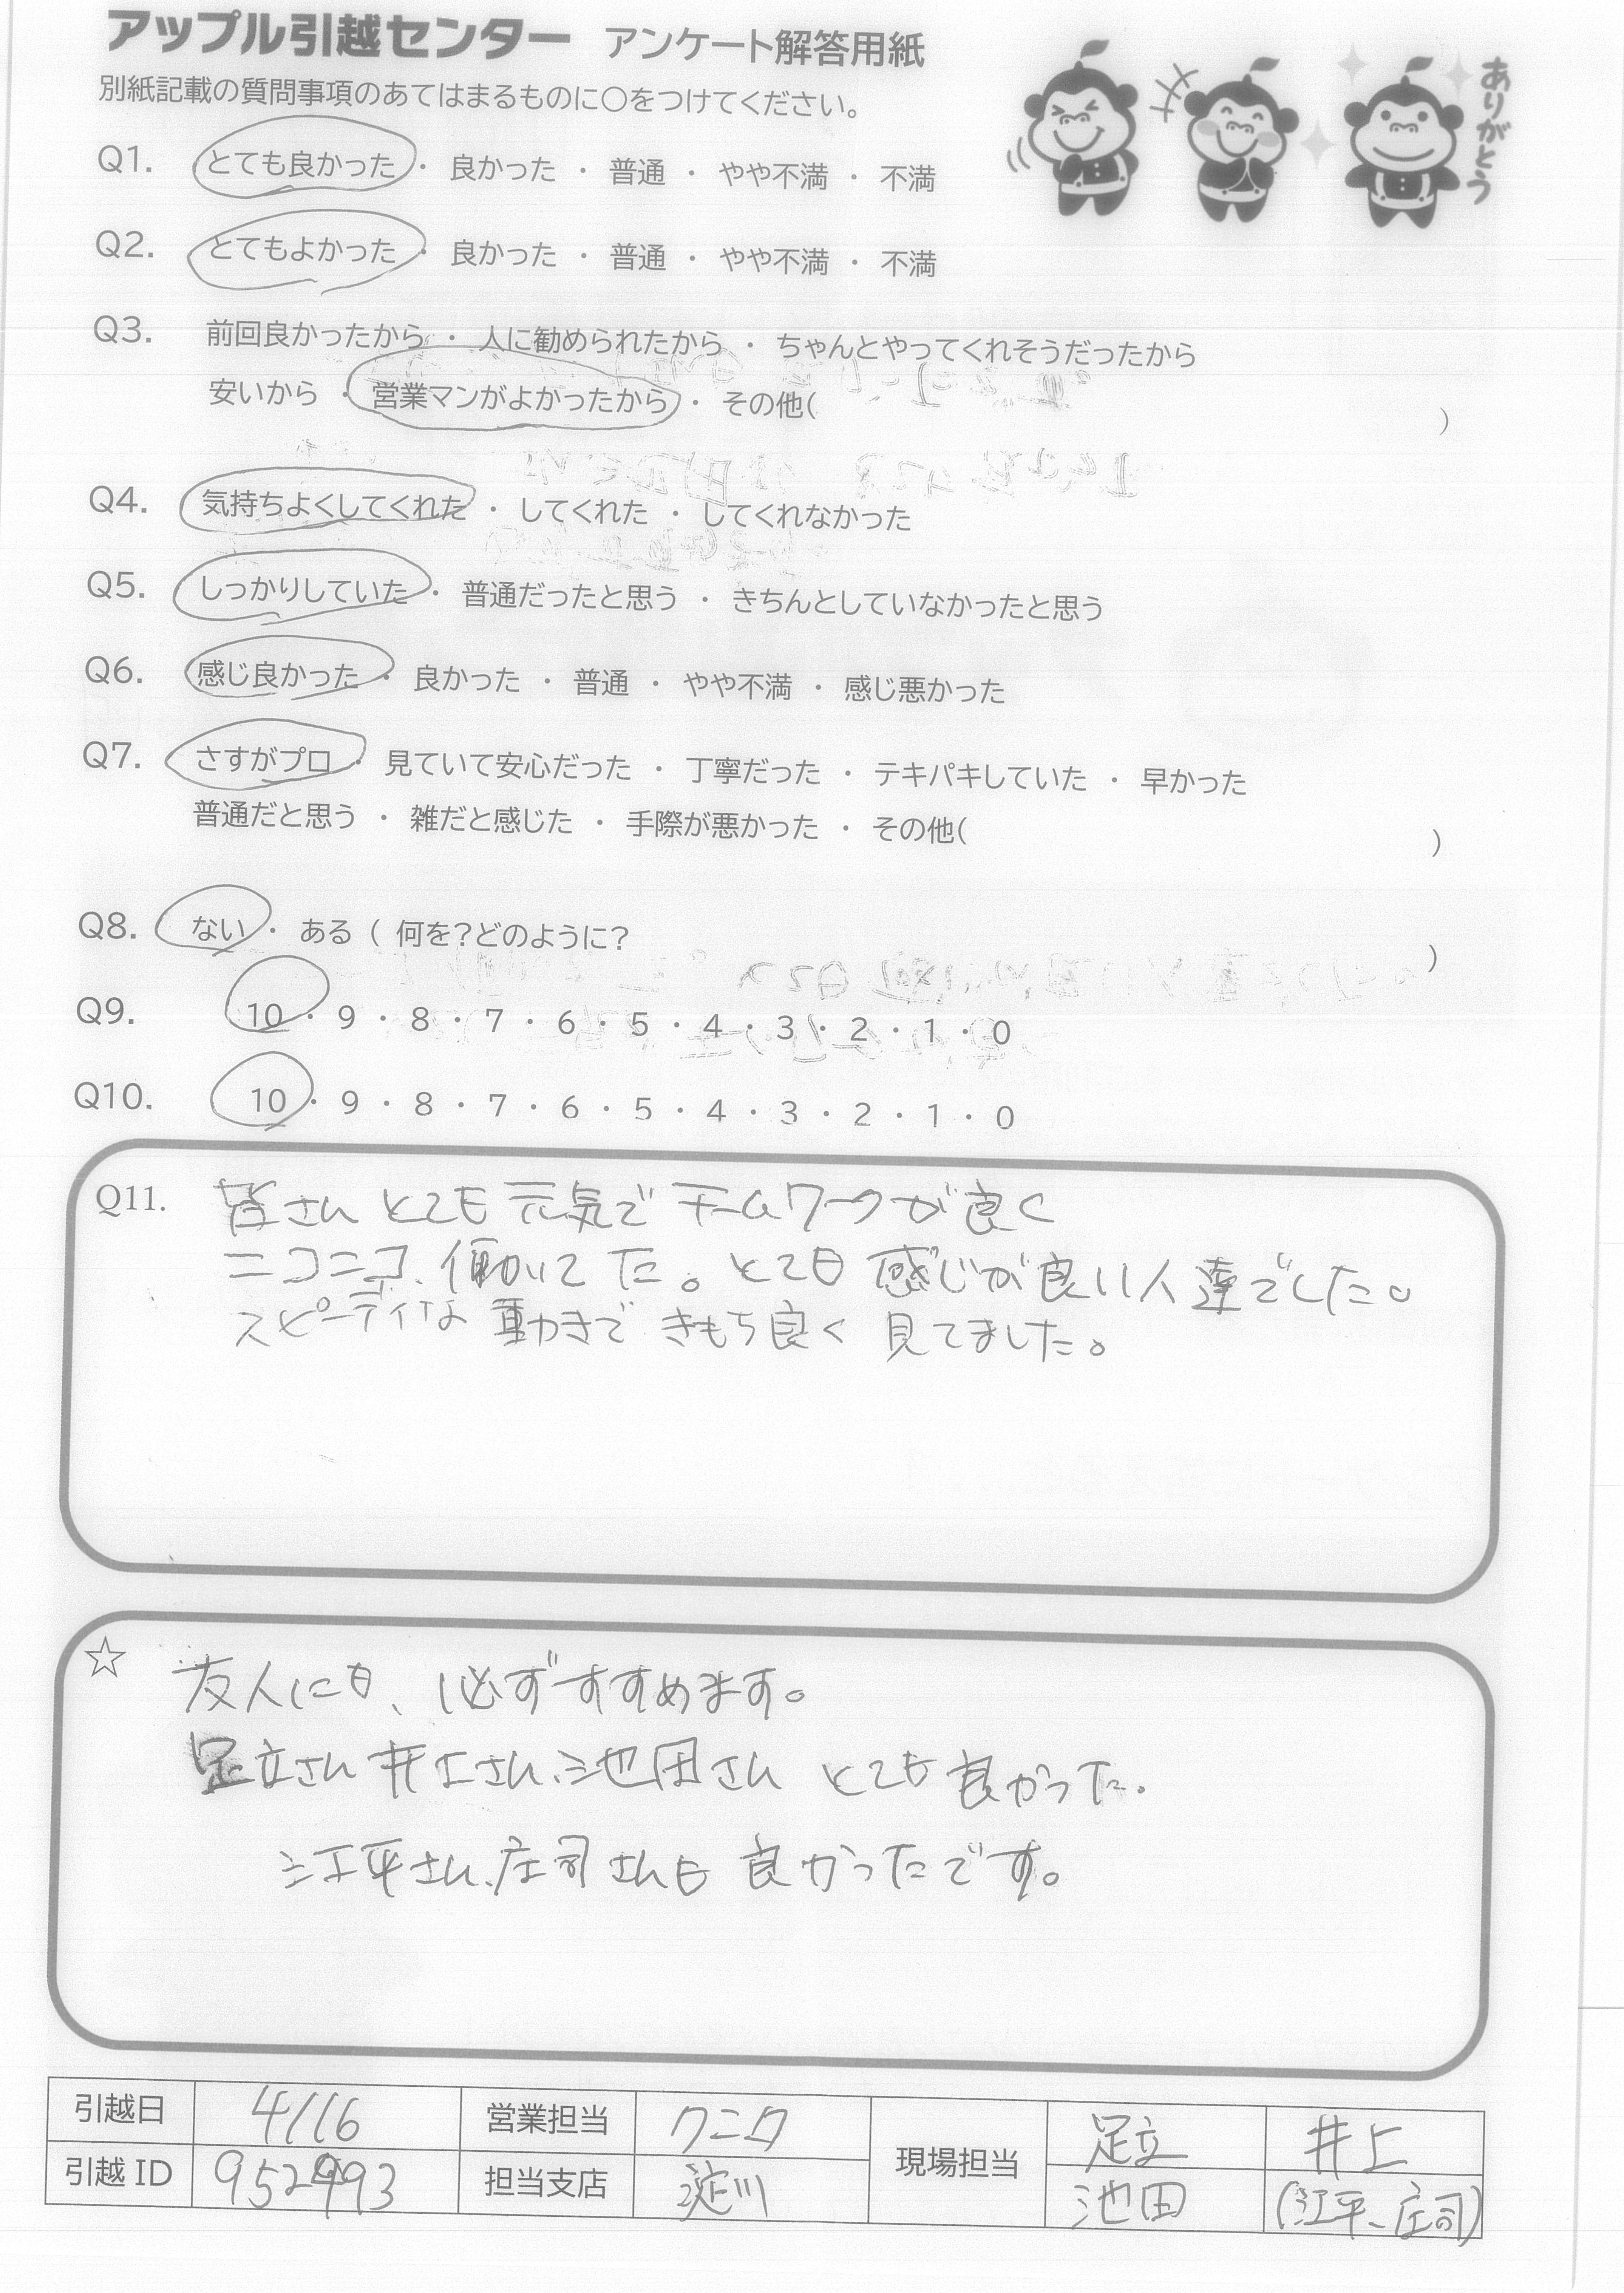 アップル引越センター アンケート解答用紙
ありがとう
別紙記載の質問事項のあてはまるものに○をつけてください。
Q1. とても良かった ・ 良かった ・ 普通 ・ やや不満 ・ 不満
Q2. とてもよかった ・ 良かった ・ 普通 ・ やや不満 ・ 不満
Q3. 前回良かったから ・ 人に勧められたから ・ ちゃんとやってくれそうだったから
安いから ・ 営業マンがよかったから ・ その他( )
Q4. 気持ちよくしてくれた ・ してくれた ・ してくれなかった
Q5. しっかりしていた ・ 普通だったと思う ・ きちんとしていなかったと思う
Q6. 感じ良かった ・ 良かった ・ 普通 ・ やや不満 ・ 感じ悪かった
Q7. さすがプロ ・ 見ていて安心だった ・ 丁寧だった ・ テキパキしていた ・ 早かった
普通だと思う ・ 雑だと感じた ・ 手際が悪かった ・ その他( )
Q8. ない ・ ある ( 何を?どのように? )
Q9. 10 ・ 9 ・ 8 ・ 7 ・ 6 ・ 5 ・ 4 ・ 3 ・ 2 ・ 1 ・ 0
Q10. 10 ・ 9 ・ 8 ・ 7 ・ 6 ・ 5 ・ 4 ・ 3 ・ 2 ・ 1 ・ 0
Q11. 皆さん とても 元気で チームワークが 良く
ニコニコ、働いてた。とても 感じが良い人達でした。
スピーディな 動きで きもち良く 見てました。
☆ 友人にも、必ずすすめます。
足立さん 井上さん、池田さん とても 良かった.
江平さん、庄司さんも 良かったです。
引越日 4/16 営業担当 クニタ 現場担当 足立 井上
引越ID 952993 担当支店 淀川 池田 (江平、庄司)